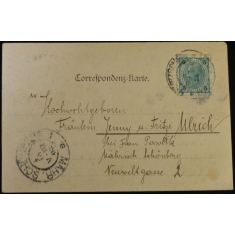 Correspondenz-Karte.
An
Hochwohlgeboren
Fräulein Jenny u. Fritzi Ulrich
bei Frau
Mährisch Schönberg
Neuweltgasse 2
MÄHR. SCH